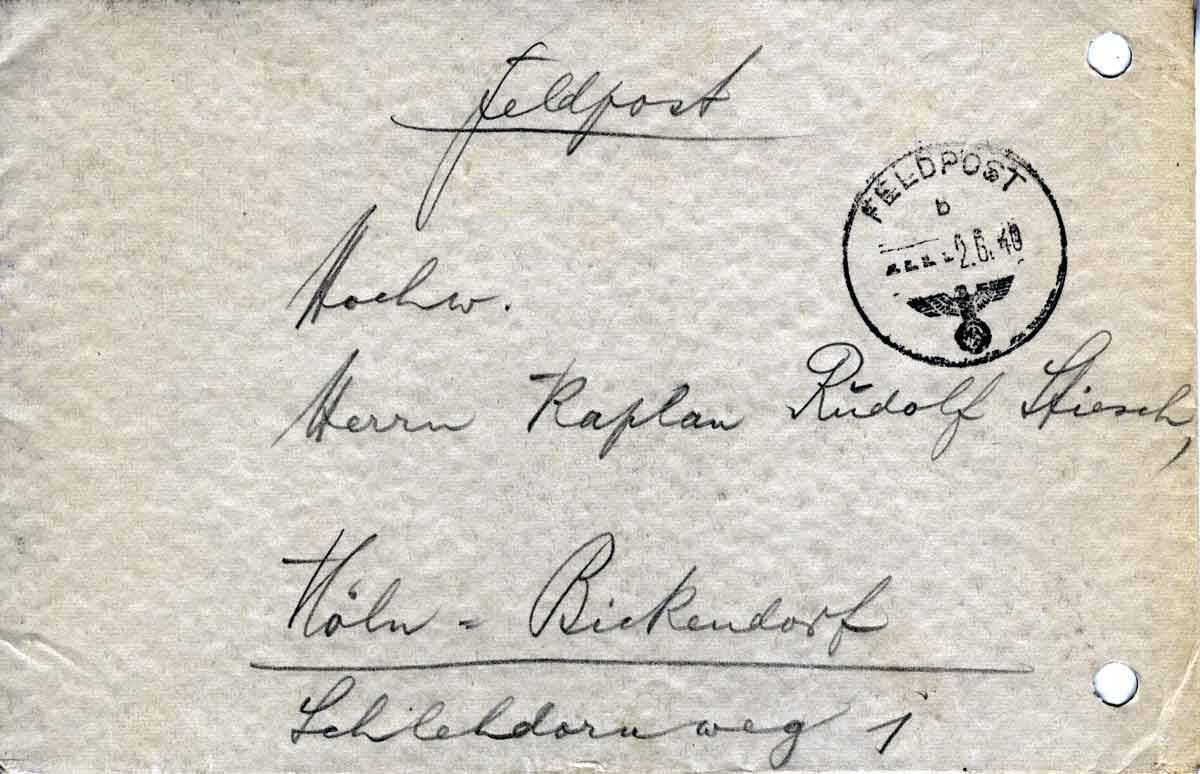 Feldpost
FELDPOST
b
2.6.40
Hochw.
Herrn Kaplan Rudolf Stiesch,
Köln = Bickendorf
Schlehdornweg 1